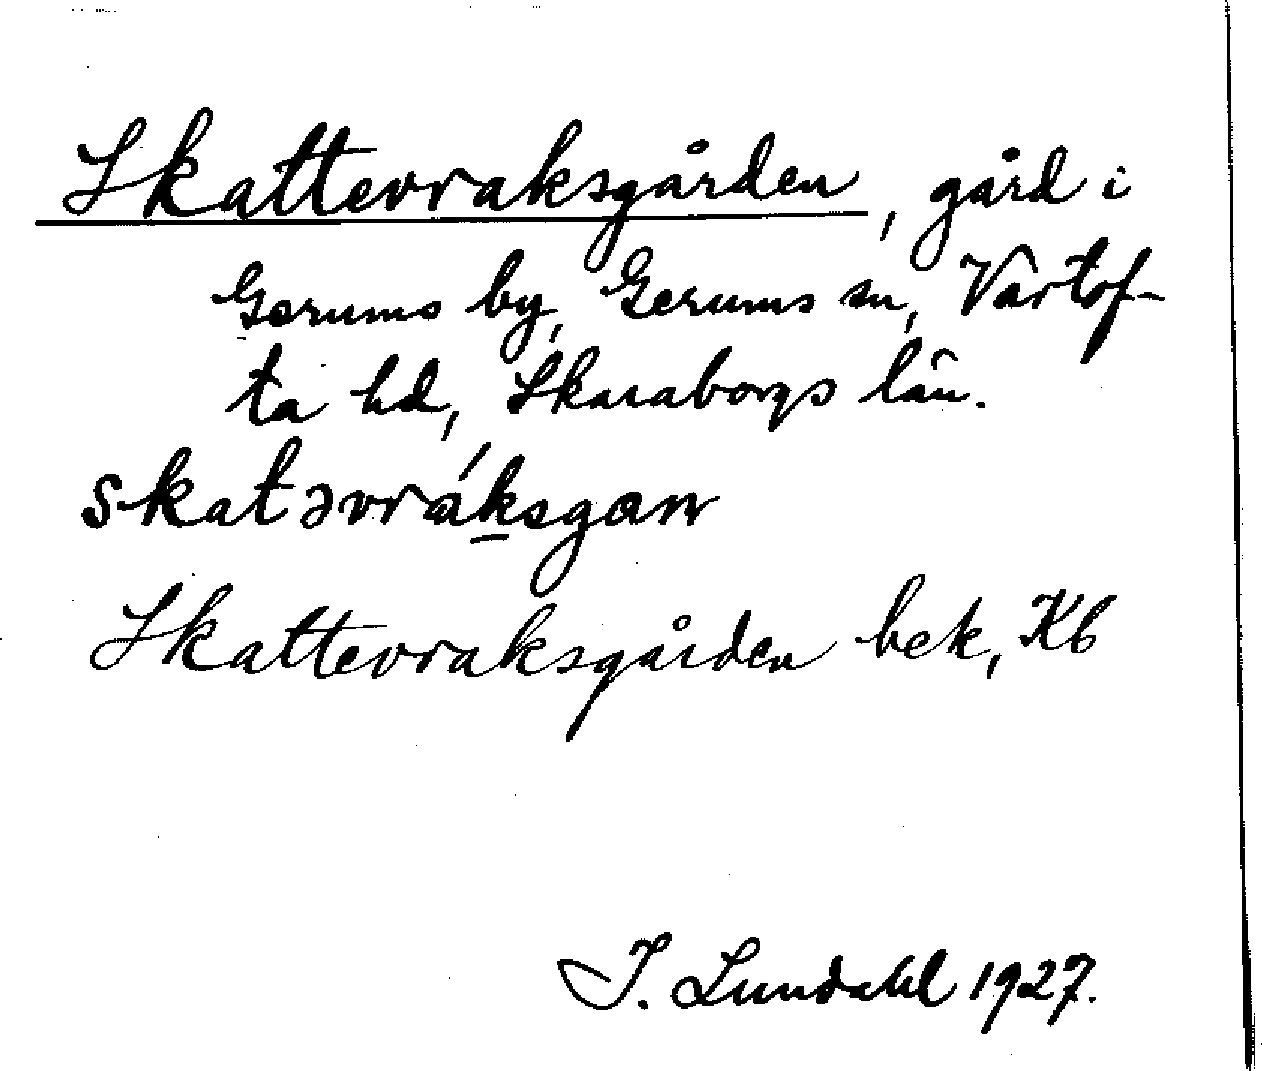 Skattevraksgården, gård i
Gerums by, Gerums sn, Vartof-
ta hd, Skaraborgs län.
skatəvráksgaɳ
Skattevraksgården bek, Kb
I. Lundahl 1927.